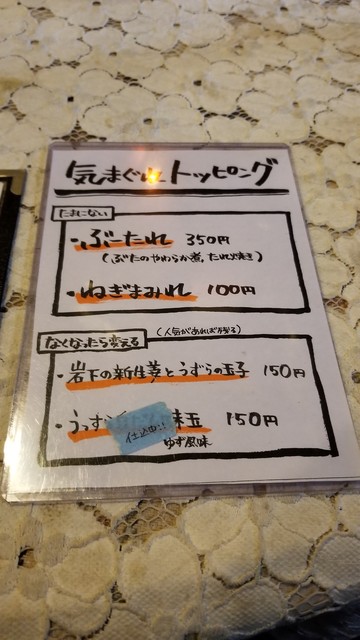 気まぐれトッピング
たまにない
・ぶーたれ 350円
(ぶたのやわらか煮、たれ焼き)
・ねぎまみれ 100円
なくなったら変える
(人気があれば
・岩下の新生姜とうずらの玉子 150円
・うっす 味玉 150円
仕込中!!
ゆず風味